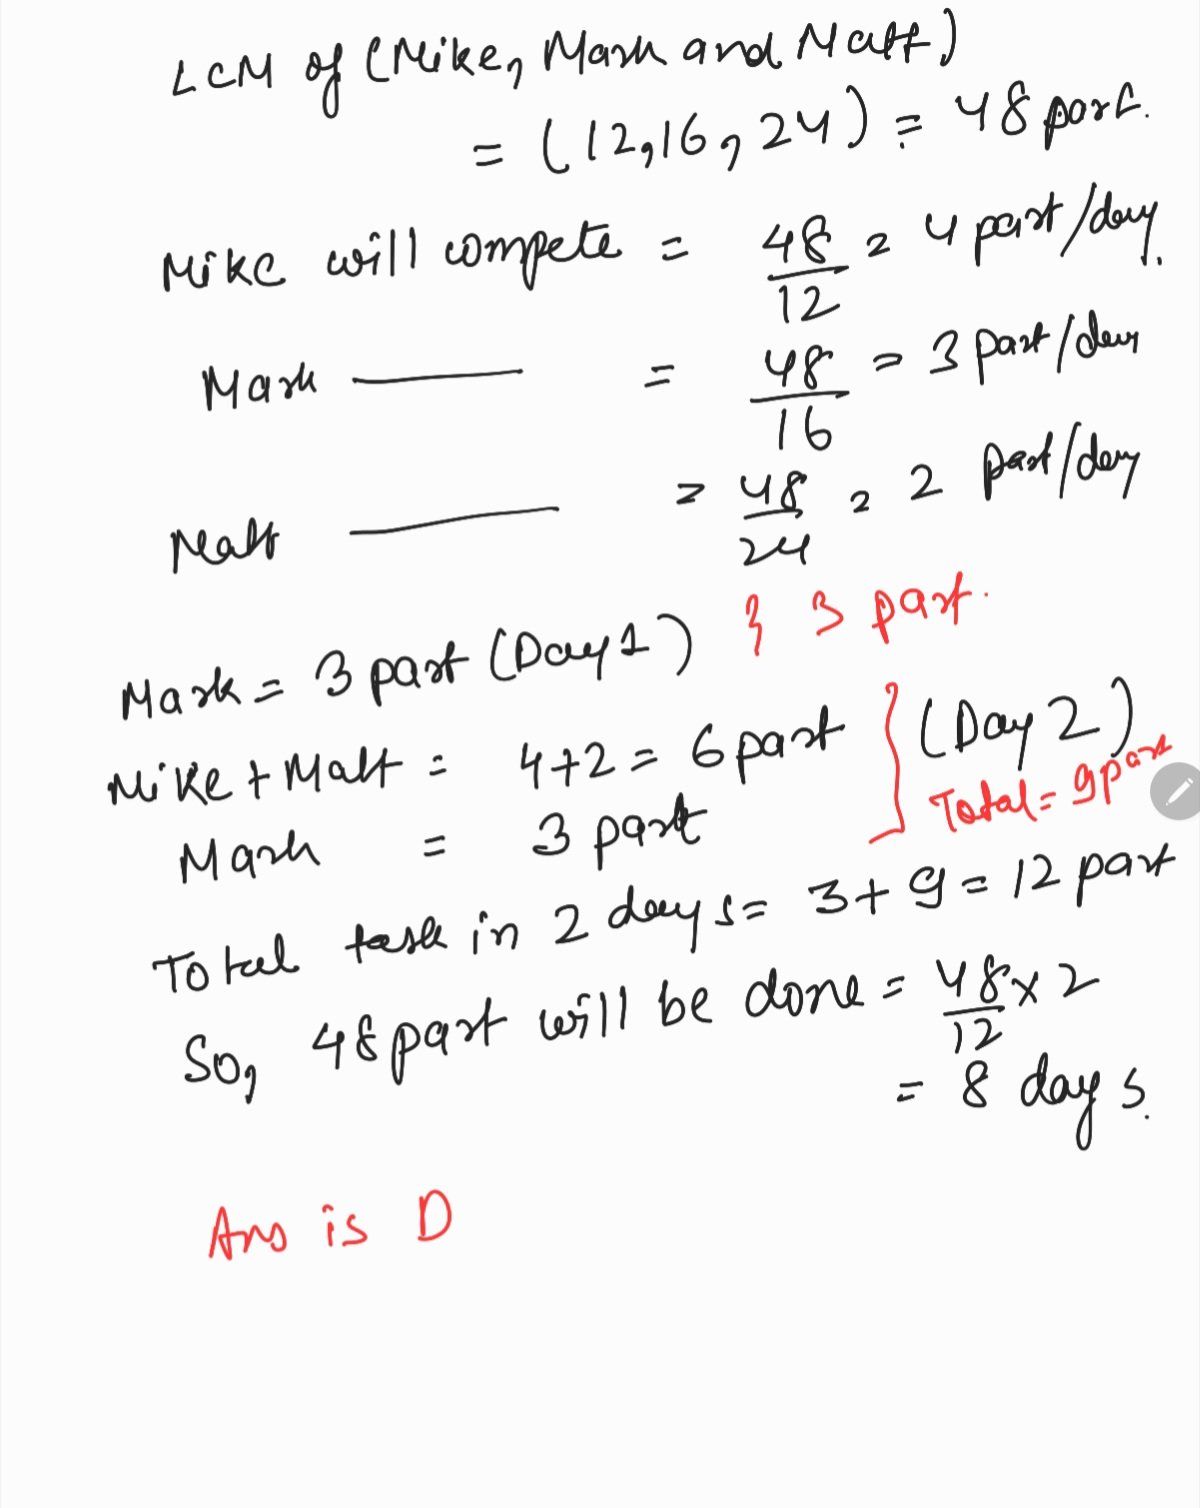 LCM of (Mike, Mark and Matt)
= (12,16,24) = 48 part.
Mike will compete = 48/12 = 4 part/day.
Mark —— = 48/16 = 3 part/day
Matt —— = 48/24 = 2 part/day
Mark = 3 part (Day 1) } 3 part.
Mike + Matt = 4+2 = 6 part } (Day 2)
Mark = 3 part Total = 9 part
Total task in 2 days = 3 + 9 = 12 part
So, 48 part will be done = 48/12 x 2
= 8 days.
Ans is D